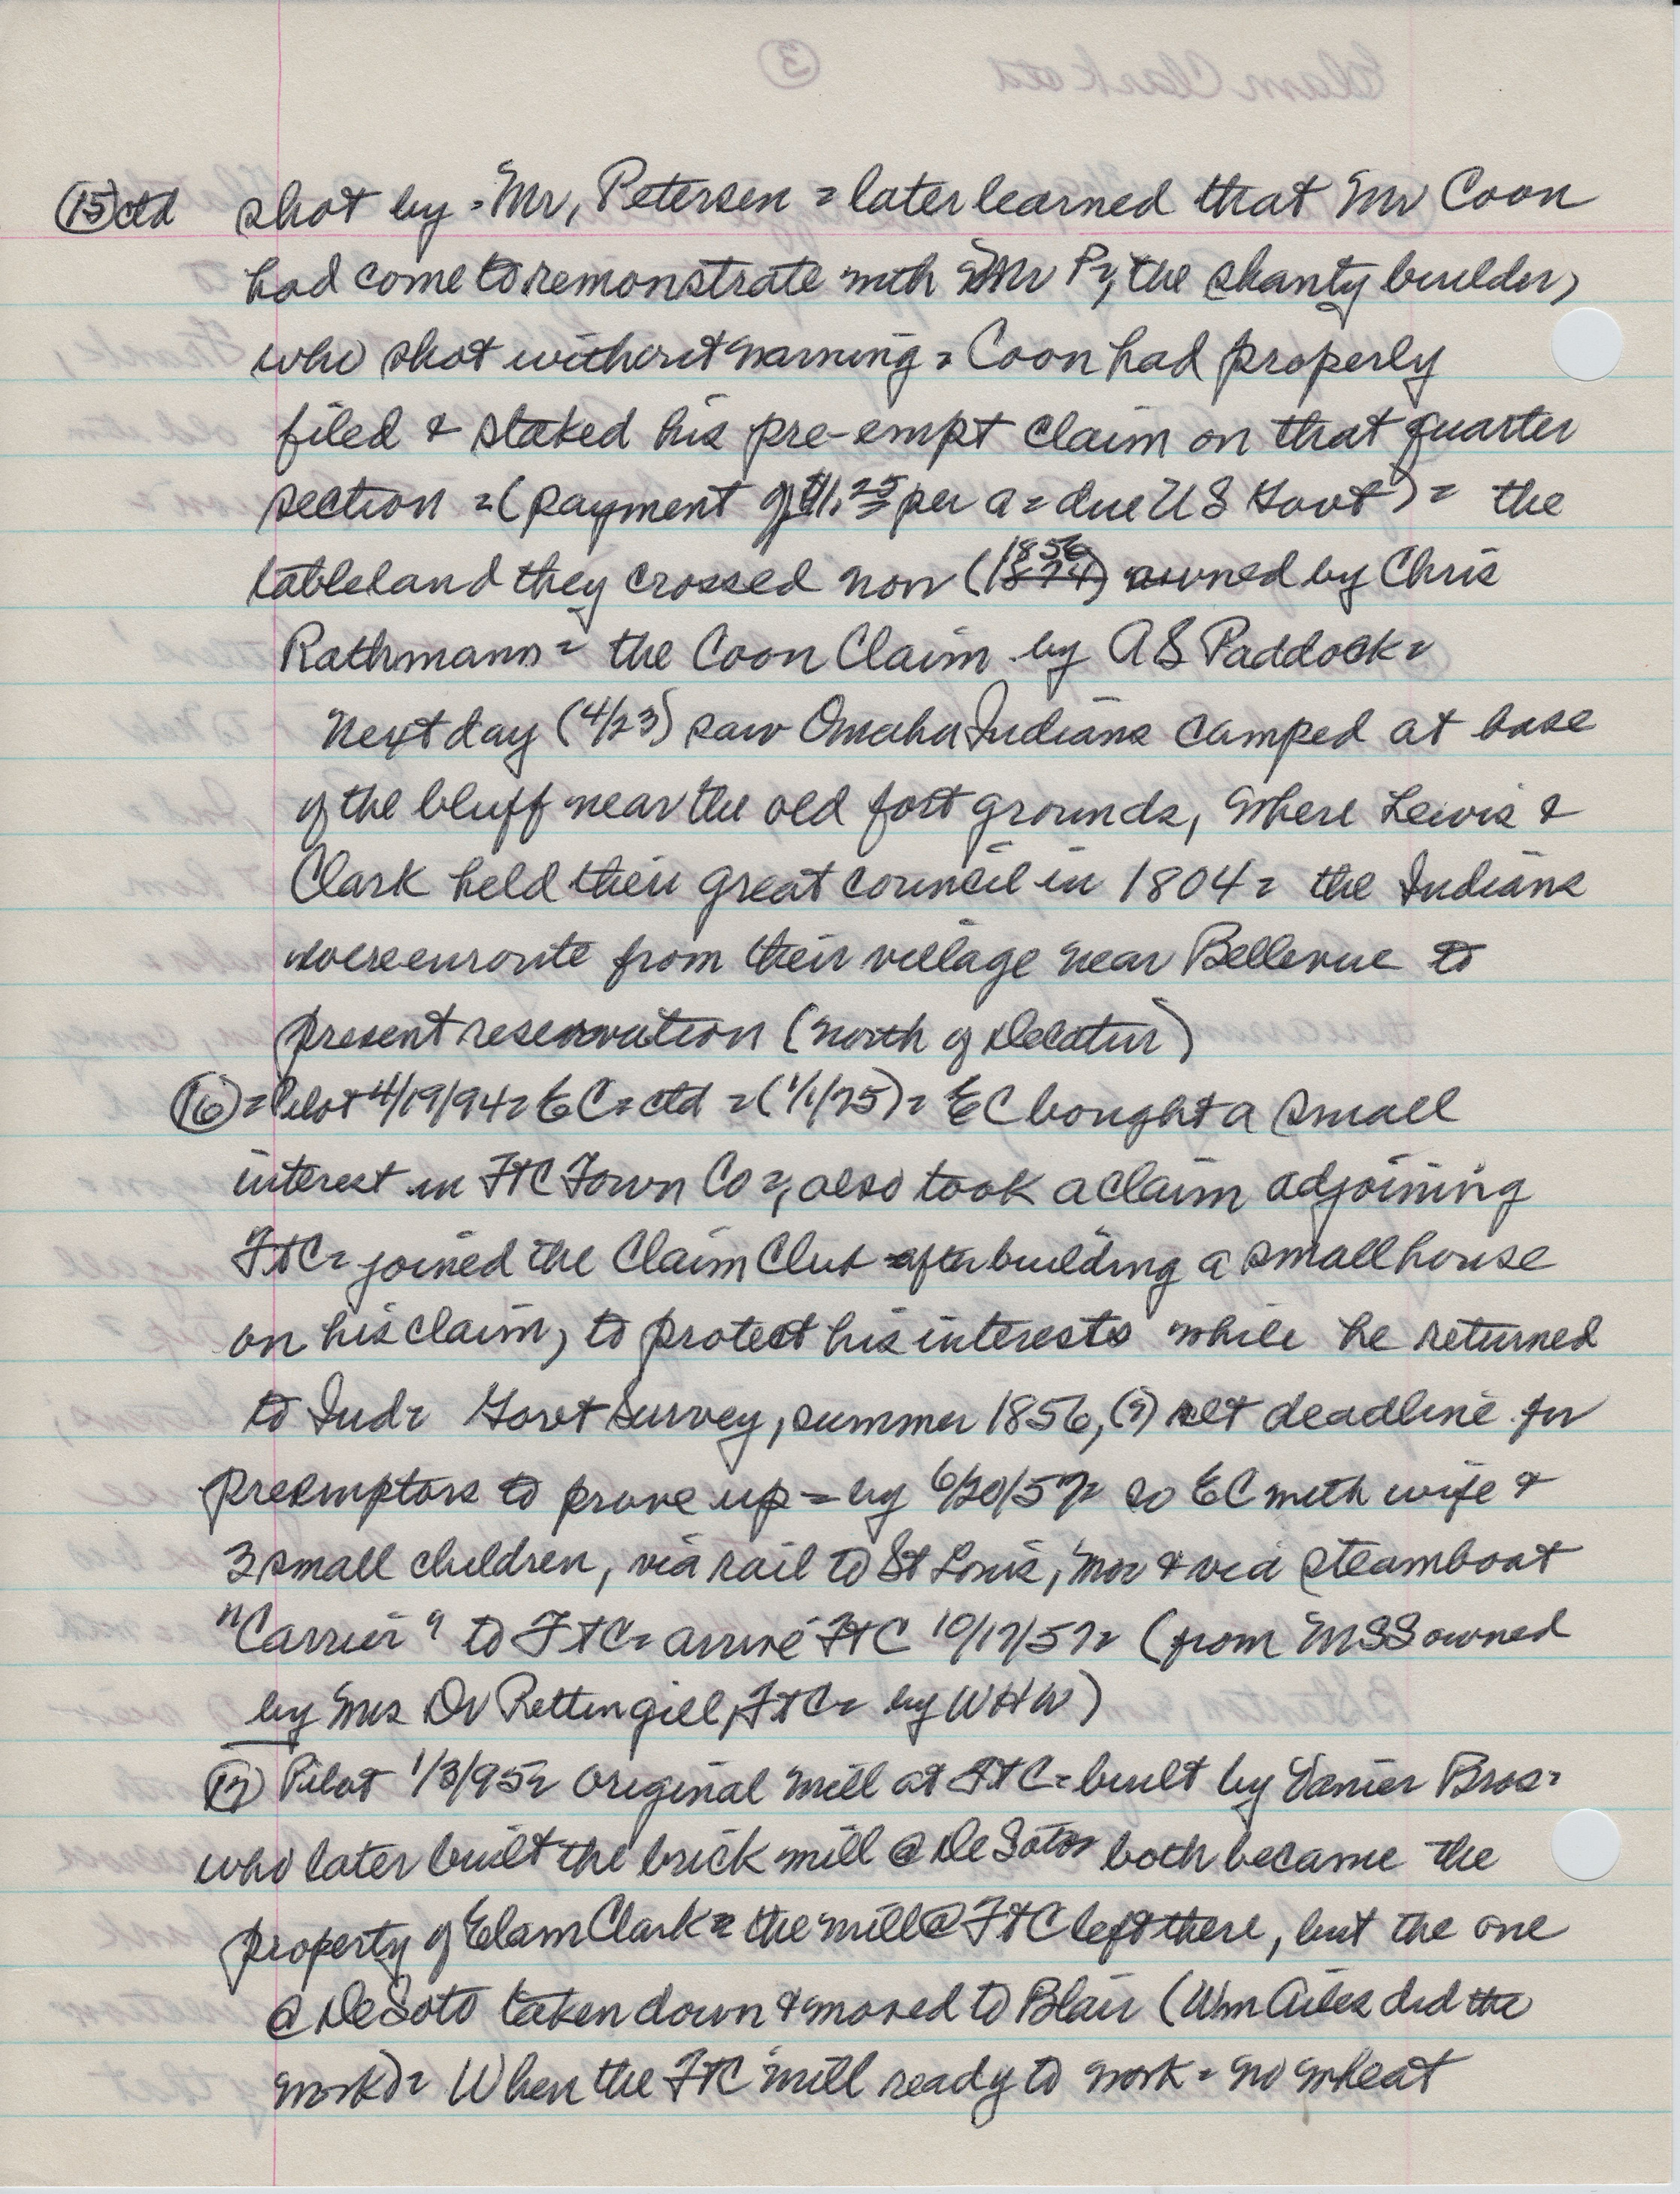 (15) ctd shot by = Mr, Petersen = later learned that Mr Coon
had come to remonstrate with Mr P=, the shanty builder,
who shot without warning = Coon had properly
filed & staked his pre-empt claim on that quarter
section = (payment of $1.25 per a = due US Govt) = the
tableland they crossed now (1856 1874) owned by Chris
Rathmann = the Coon Claim by A S Paddock =
Next day (4/23) saw Omaha Indians camped at base
of the bluff near the old fort grounds, where Lewis &
Clark held their great council in 1804 = the Indians
were enroute from their village near Bellevue to
present reservation (north of Decatur)
(16) = Pilot 4/19/94 = EC = ctd = (1/1/75) = EC bought a small
interest in FtC Town Co =, also took a claim adjoining
FtC = joined the Claim Club after building a small house
on his claim, to protect his interests while he returned
to Ind = Govt Survey, summer 1856, (?) set deadline for
preemptors to prove up = by 6/20/57 = so EC with wife &
3 small children, via rail to St Louis, Mo = & via steamboat
"Carrier" to FtC = arrive FtC 10/17/57 = (from MSS owned
by Mrs Dr Pettingill, FtC = by WHW)
(17) Pilot 1/3/95 = Original mill at FtC = built by Vanier Bros =
who later built the brick mill @ DeSoto = both became the
property of Elam Clark = the mill @ FtC left there, but the one
@ DeSoto taken down & moved to Blair (Wm Ailes did the
work) = When the FtC mill ready to work = no wheat